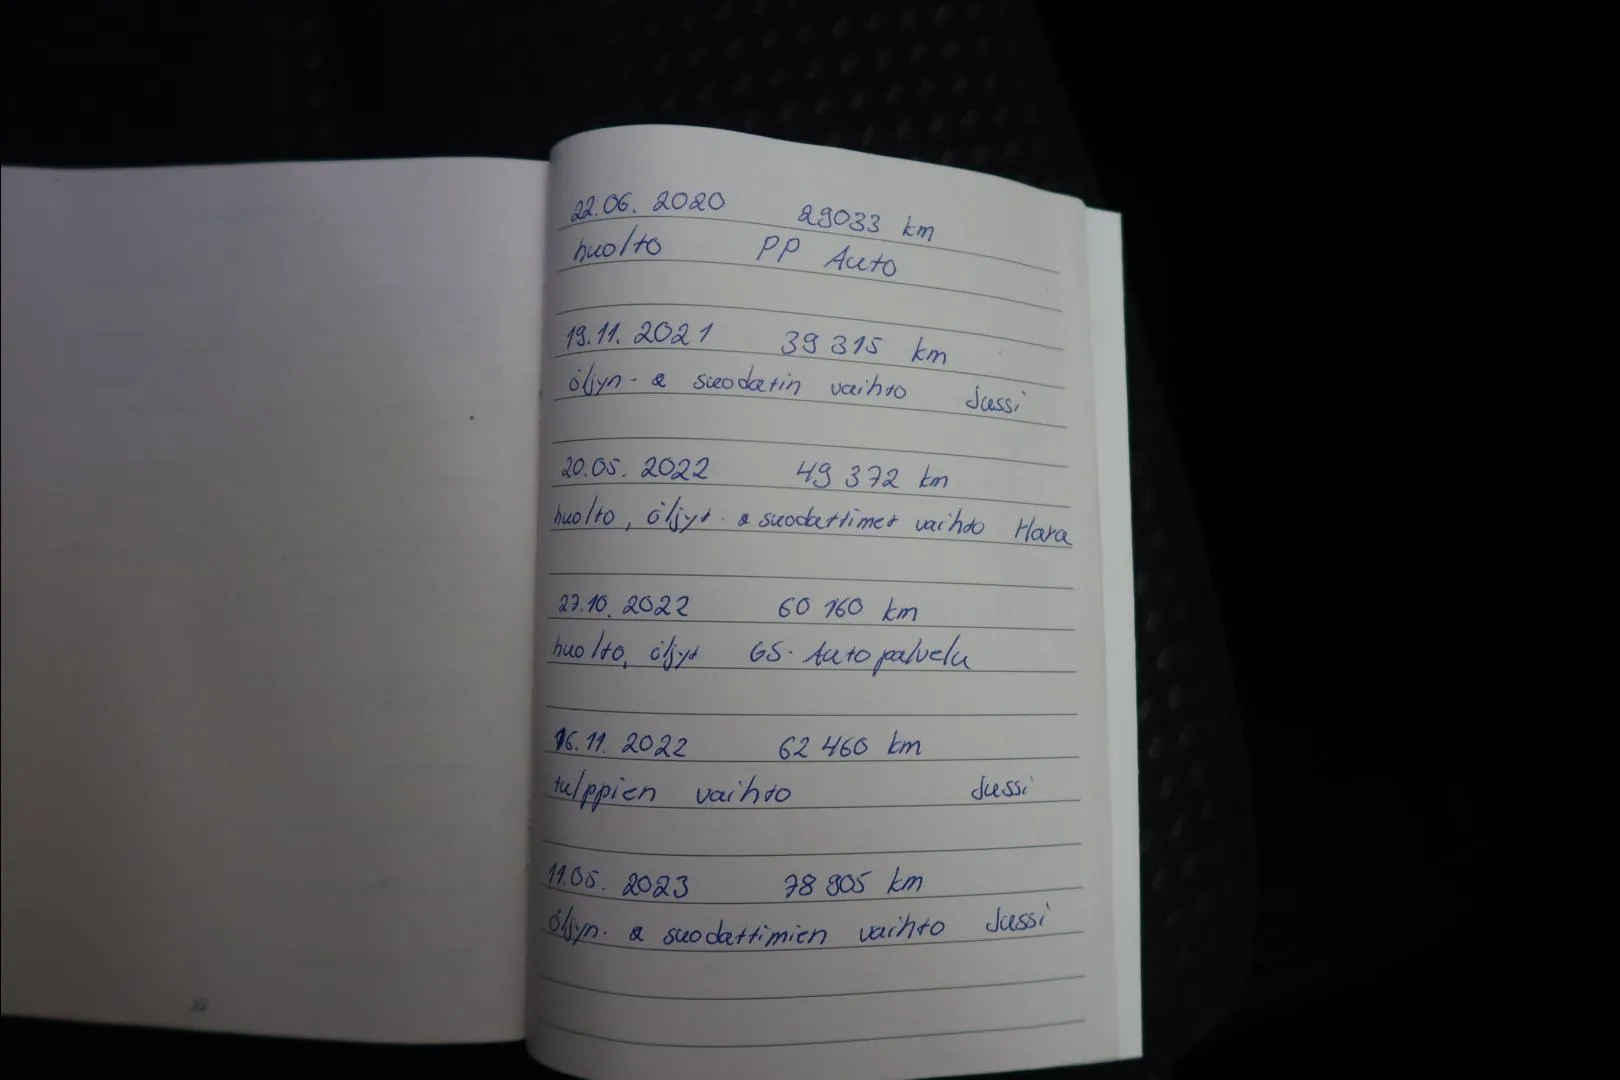 22.06. 2020 29033 km
huolto PP Auto
19.11. 2021 39 315 km
öljyn- & suodatin vaihto Jussi
20.05. 2022 49 372 km
huolto, öljyt- & suodattimet vaihto Hara
27.10. 2022 60 160 km
huolto, öljyt GS-Autopalvelu
16.11. 2022 62 460 km
tulppien vaihto Jussi
11.05. 2023 78 905 km
öljyn- & suodattimien vaihto Jussi